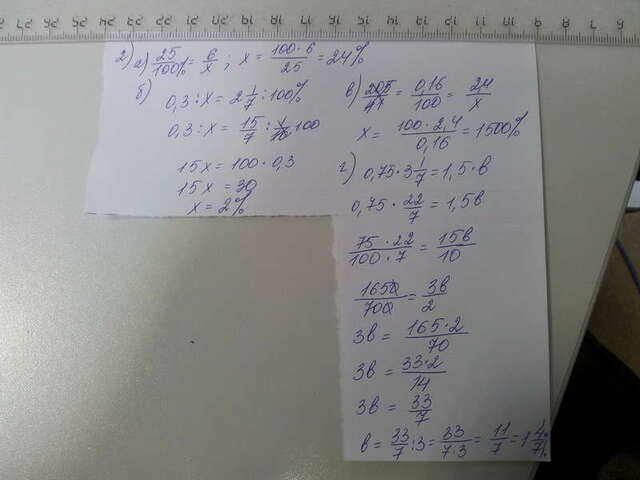 2) а) 25/100% = 6/x ; x = 100·6/25 = 24%
б)
0,3 : x = 2 1/7 : 100%
0,3 : x = 15/7 : 100
15x = 100 · 0,3
15x = 30
x = 2%
в) 205/41 = 0,16/100 = 2,4/x
x = 100·2,4/0,16 = 1500%
г) 0,75 · 3 1/7 = 1,5 · в
0,75 · 22/7 = 1,5в
75·22/100·7 = 15в/10
1650/700 = 3в/2
3в = 165·2/70
3в = 33·2/14
3в = 33/7
в = 33/7 : 3 = 33/7·3 = 11/7 = 1 4/7